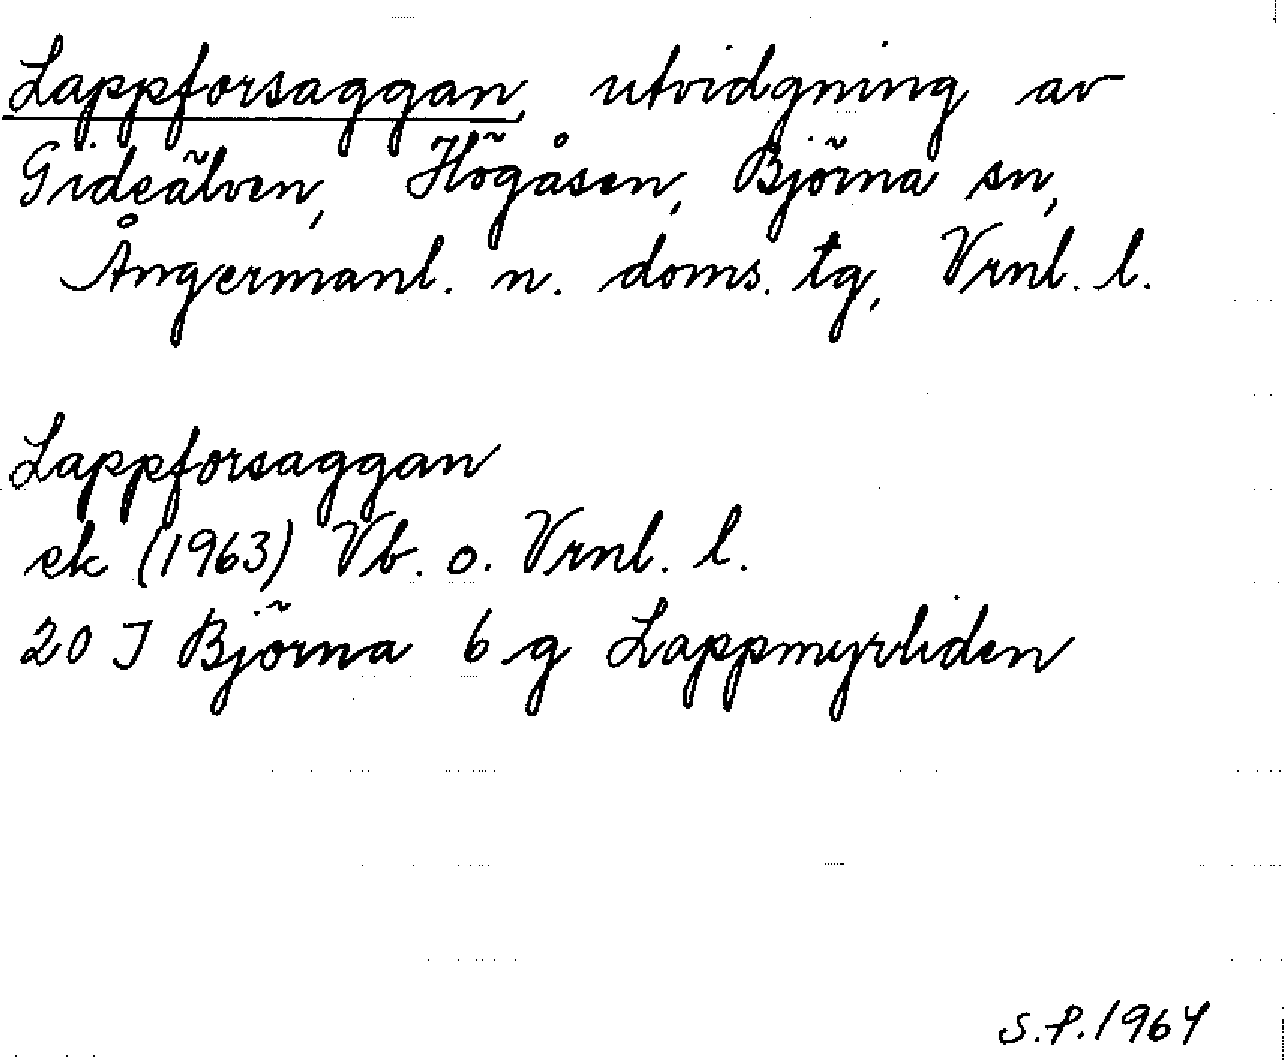 Lappforsaggan, utvidgning av
Gideälven, Högåsen, Björna sn,
Ångermanl. n. doms. tg, Vrnl. l.
Lappforsaggan
ek (1963) Vb. o. Vrnl. l.
20 J Björna 6 g Lappmyrliden
S.P. 1964